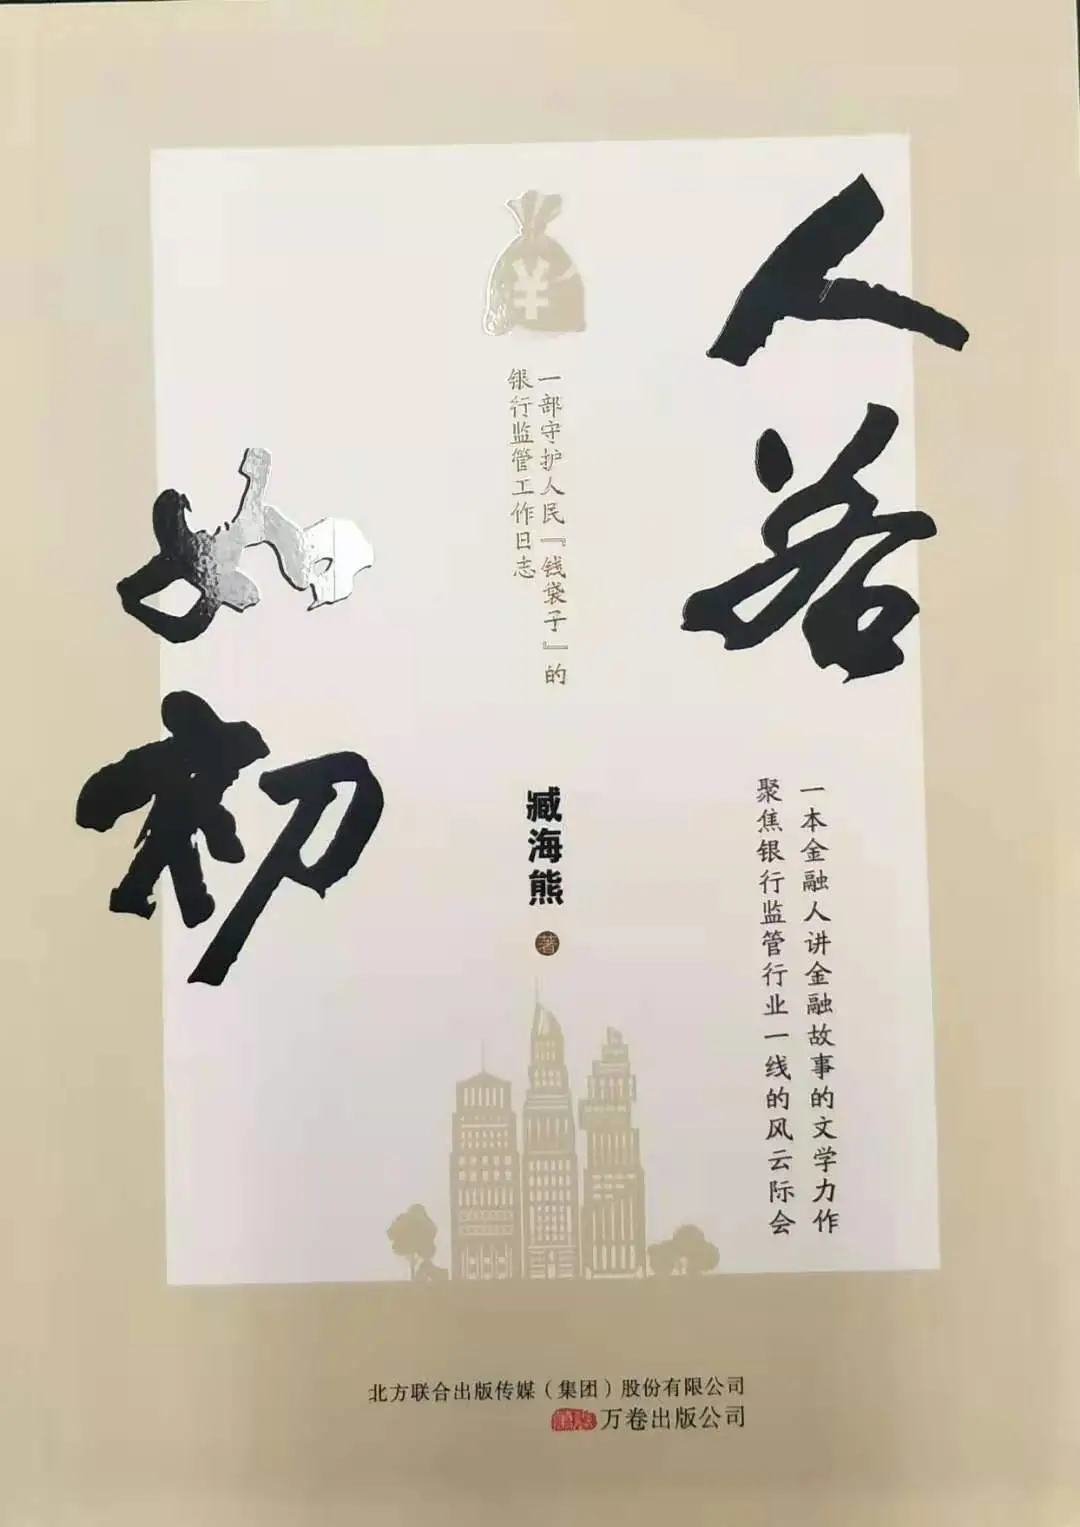 人若
如初
¥
一部守护人民『钱袋子』的
银行监管工作日志
臧海熊
著
一本金融人讲金融故事的文学力作
聚焦银行监管行业一线的风云际会
北方联合出版传媒(集团)股份有限公司
万卷出版公司